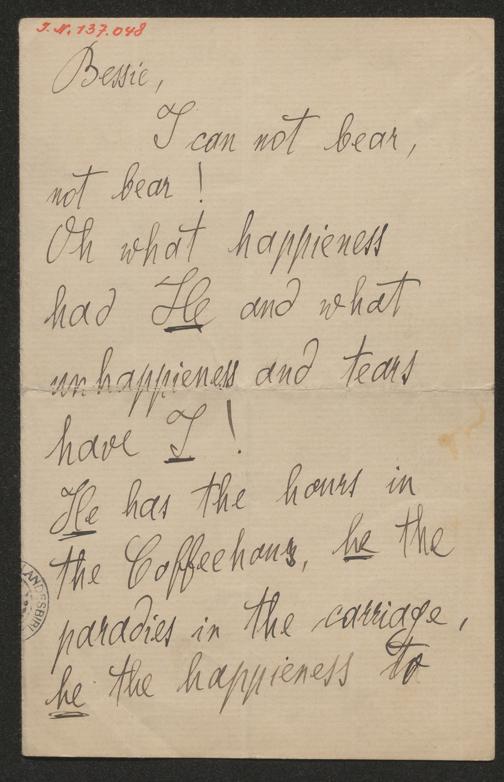 J. N. 137.048
Bessie,
I can not bear,
not bear !
Oh what happieness
had He and what
unhappieness and tears
have I !
He has the hours in
the Coffeehous, he the
paradies in the carriage,
he the happieness to